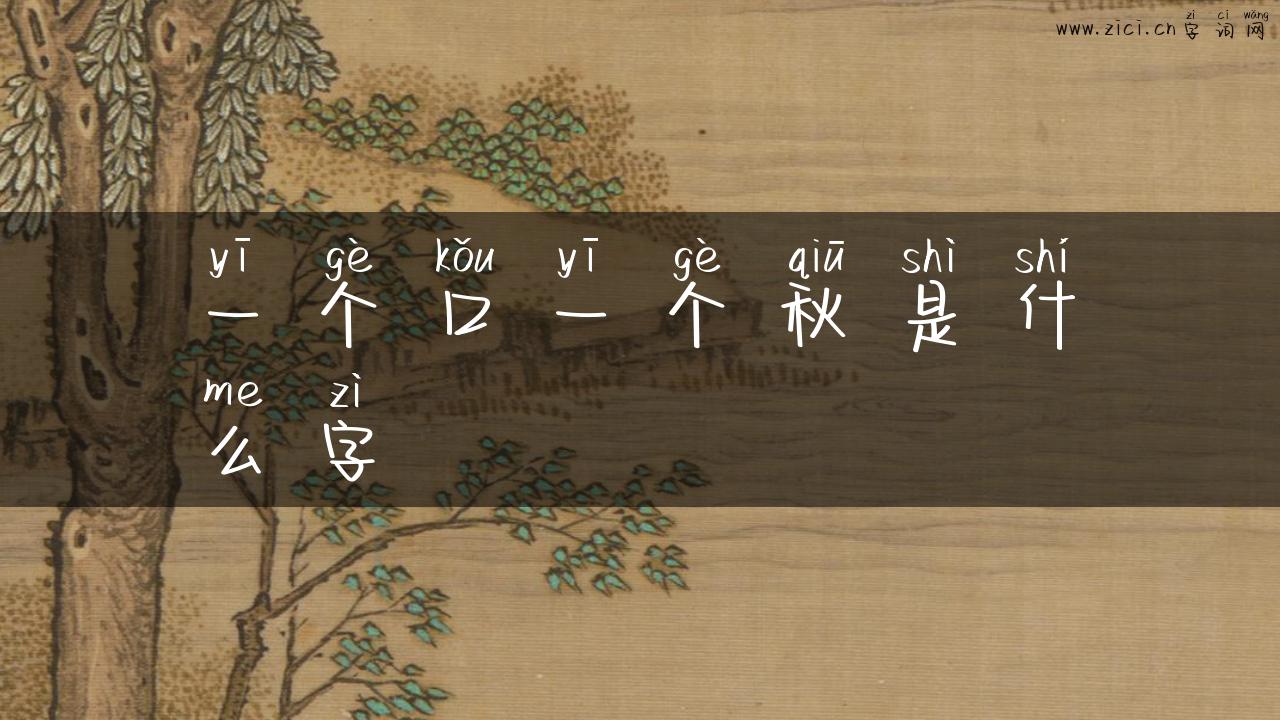 zì cí wǎng
www.zici.cn 字词网
yī gè kǒu yī gè qiū shì shí
一个口一个秋是什
me zì
么字